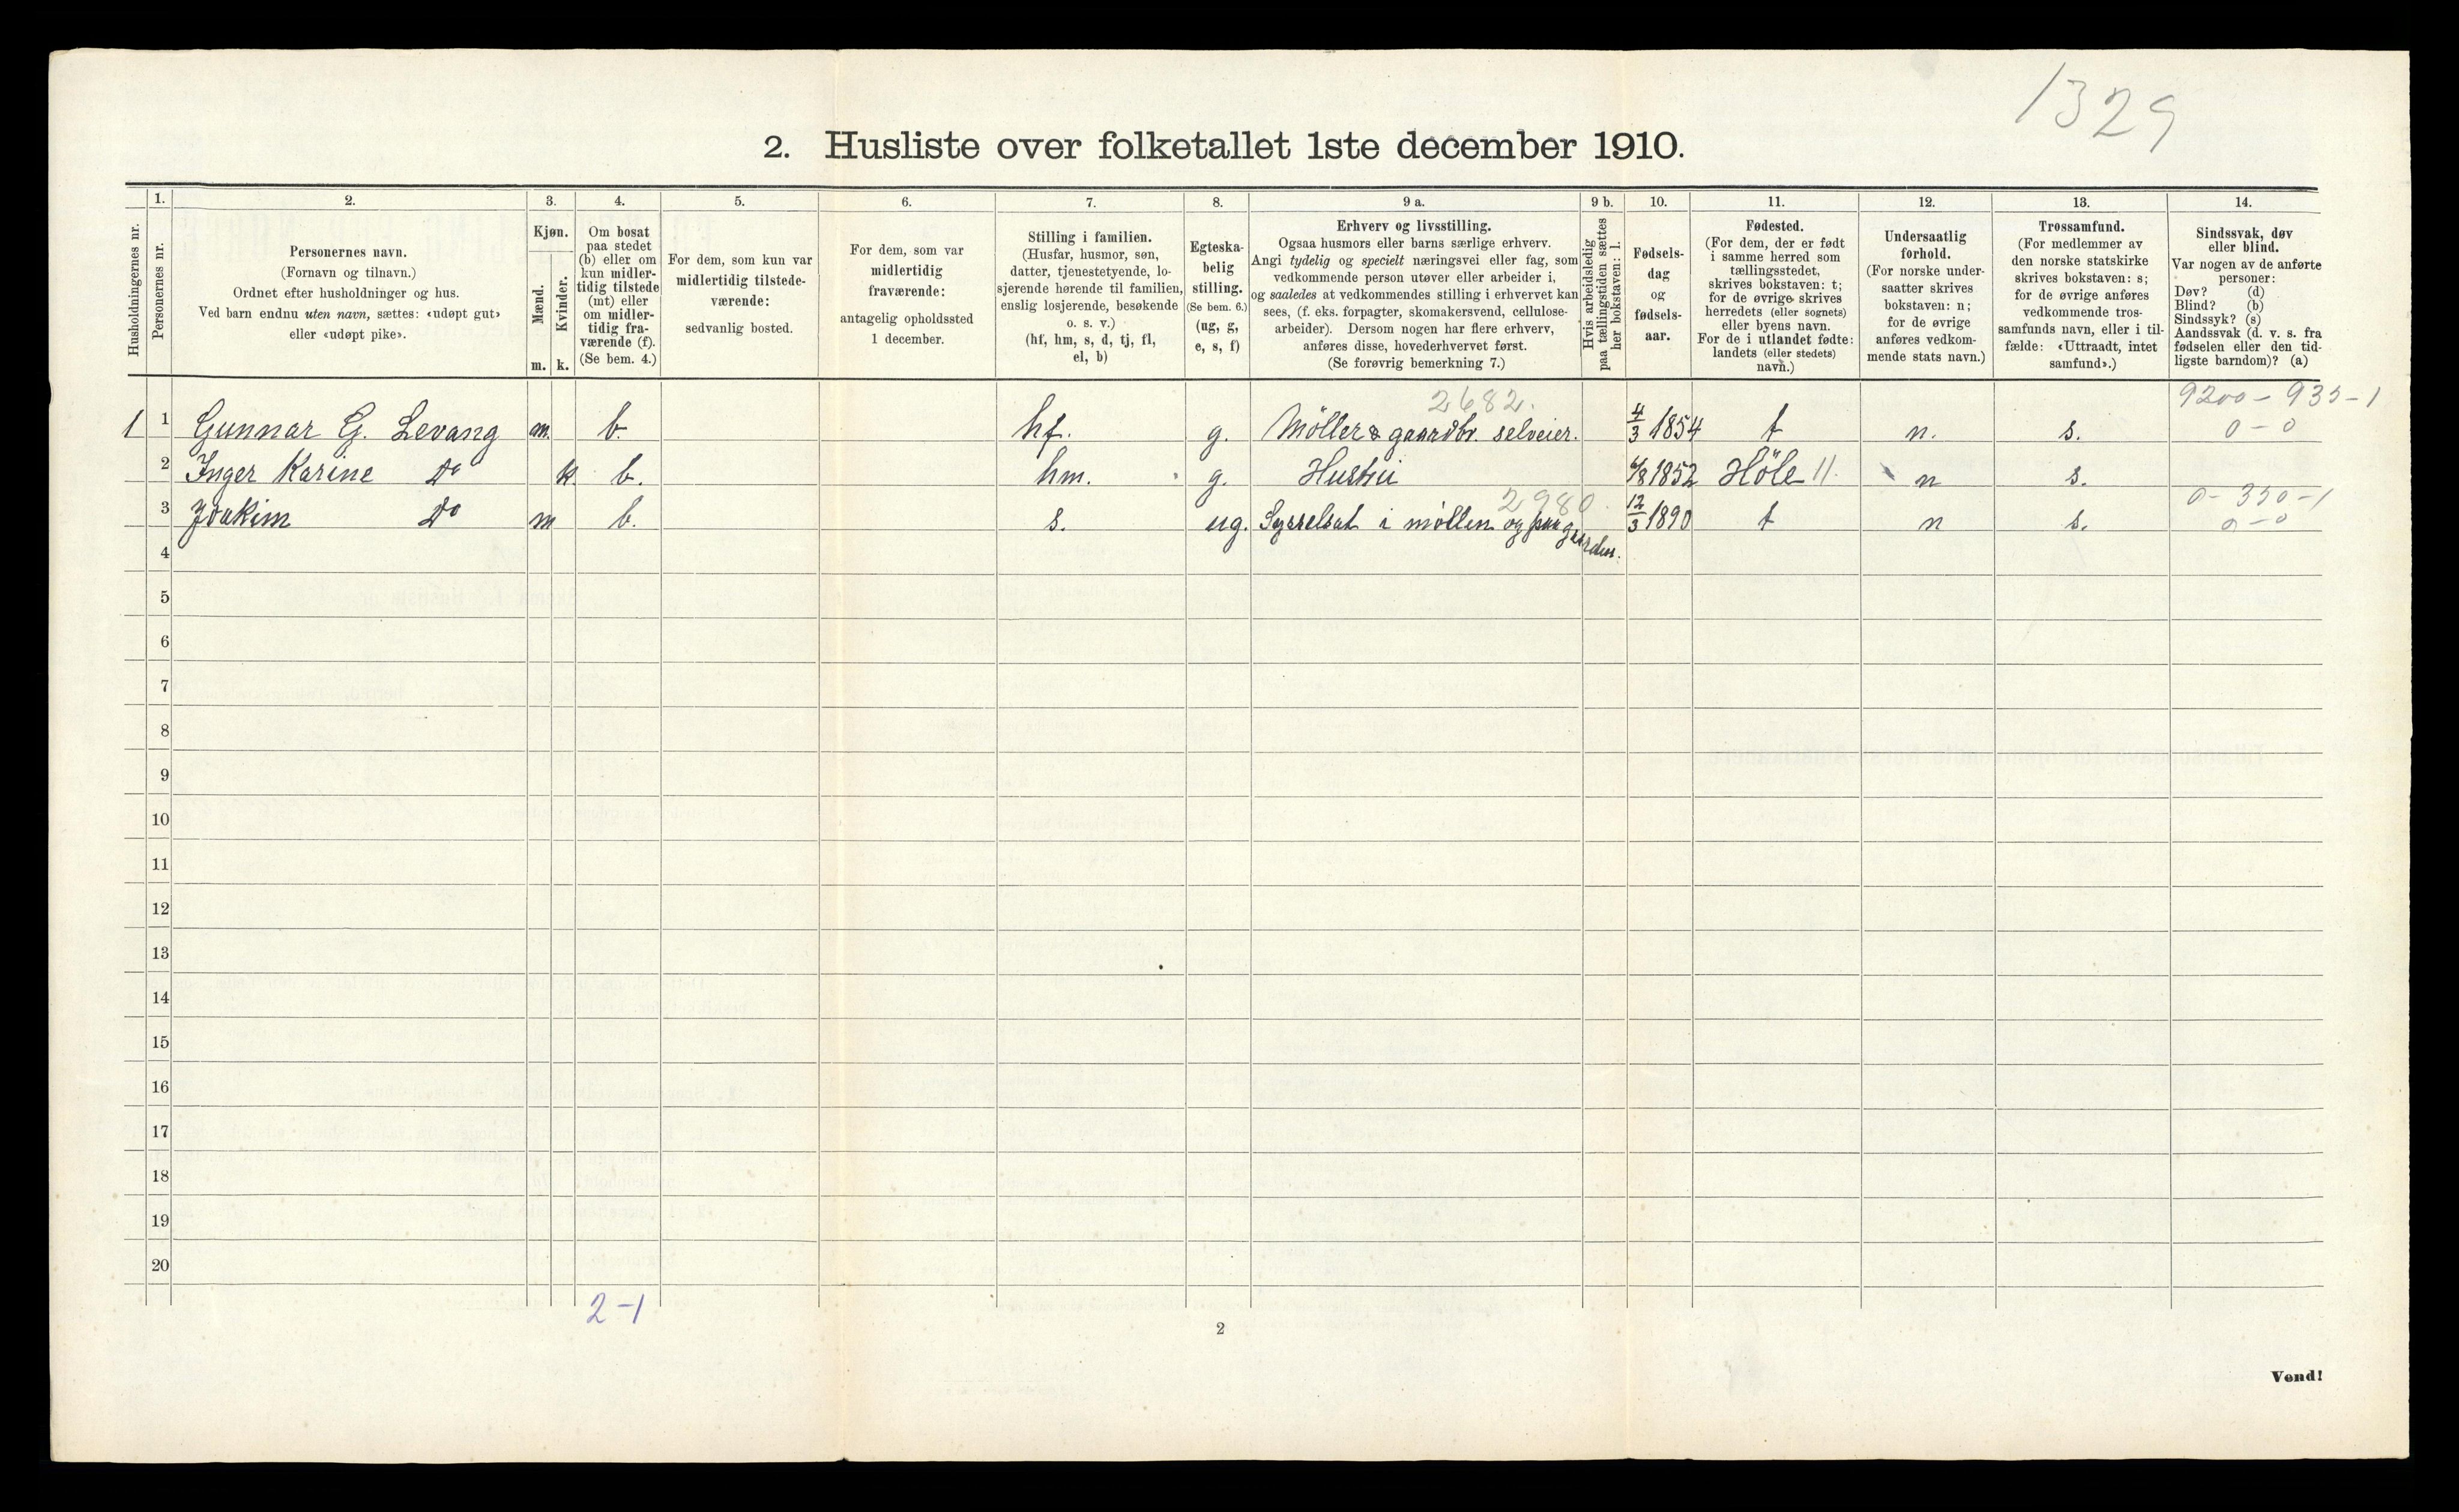 1329
2. Husliste over folketallet 1ste december 1910.
Husholdningernes nr.
1.
Personernes nr.
2.
Personernes navn.
(Fornavn og tilnavn.)
Ordnet efter husholdninger og hus.
Ved barn endnu uten navn, sættes: «udøpt gut»
eller «udøpt pike».
3.
Kjøn.
Mænd.
m.
Kvinder.
k.
4.
Om bosat
paa stedet
(b) eller om
kun midler-
tidig tilstede
(mt) eller
om midler-
tidig fra-
værende (f).
(Se bem. 4.)
5.
For dem, som kun var
midlertidig tilstede-
værende:
sedvanlig bosted.
6.
For dem, som var
midlertidig
fraværende:
antagelig opholdssted
1 december.
7.
Stilling i familien.
(Husfar, husmor, søn,
datter, tjenestetyende, lo-
sjerende hørende til familien,
enslig losjerende, besøkende
o. s. v.)
(hf, hm, s, d, tj, fl,
el, b)
8.
Egteska-
belig
stilling.
(Se bem. 6.)
(ug, g,
e, s, f)
9 a.
Erhverv og livsstilling.
Ogsaa husmors eller barns særlige erhverv.
Angi tydelig og specielt næringsvei eller fag, som
vedkommende person utøver eller arbeider i,
og saaledes at vedkommendes stilling i erhvervet kan
sees, (f. eks. forpagter, skomakersvend, cellulose-
arbeider). Dersom nogen har flere erhverv,
anføres disse, hovederhvervet først.
(Se forøvrig bemerkning 7.)
9 b.
Hvis arbeidsledig
paa tællingstiden sættes
her bokstaven: l.
10.
Fødsels-
dag
og
fødsels-
aar.
11.
Fødested.
(For dem, der er født
i samme herred som
tællingsstedet,
skrives bokstaven: t;
for de øvrige skrives
herredets (eller sognets)
eller byens navn.
For de i utlandet fødte:
landets (eller stedets)
navn.)
12.
Undersaatlig
forhold.
(For norske under-
saatter skrives
bokstaven: n;
for de øvrige
anføres vedkom-
mende stats navn.)
13.
Trossamfund.
(For medlemmer av
den norske statskirke
skrives bokstaven: s;
for de øvrige anføres
vedkommende tros-
samfunds navn, eller i til-
fælde: «Uttraadt, intet
samfund».)
14.
Sindssvak, døv
eller blind.
Var nogen av de anførte
personer:
Døv? (d)
Blind? (b)
Sindssyk? (s)
Aandssvak (d. v. s. fra
fødselen eller den tid-
ligste barndom)? (a)
2682. 9200-935-1
1 1 Gunnar G. Levang m. b. hf. g. Möller & gaardbr. selveier. 4/3 1854 t n. s. 0-0
2 Inger Karine Do k. b. hm. g. Hustru 6/8 1852 Höle 11. n s.
2980. 0-350-1
3 Joakim Do m b. s. ug. Sysselsat i møllen og paa gaarden. 12/3 1890 t n s. 0-0
4
5
6
7
8
9
10
11
12
13
14
15
16
17
18
19
20
2-1
2
Vend!